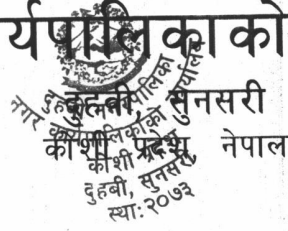 र्यपालिकाको
दुहबी, सुनसरी
कोशी प्रदेश नेपाल
दुहबी नगरपालिका
नगर कार्यपालिकाको कार्यालय
कोशी प्रदेश
दुहबी, सुनसरी
स्था: २०७३